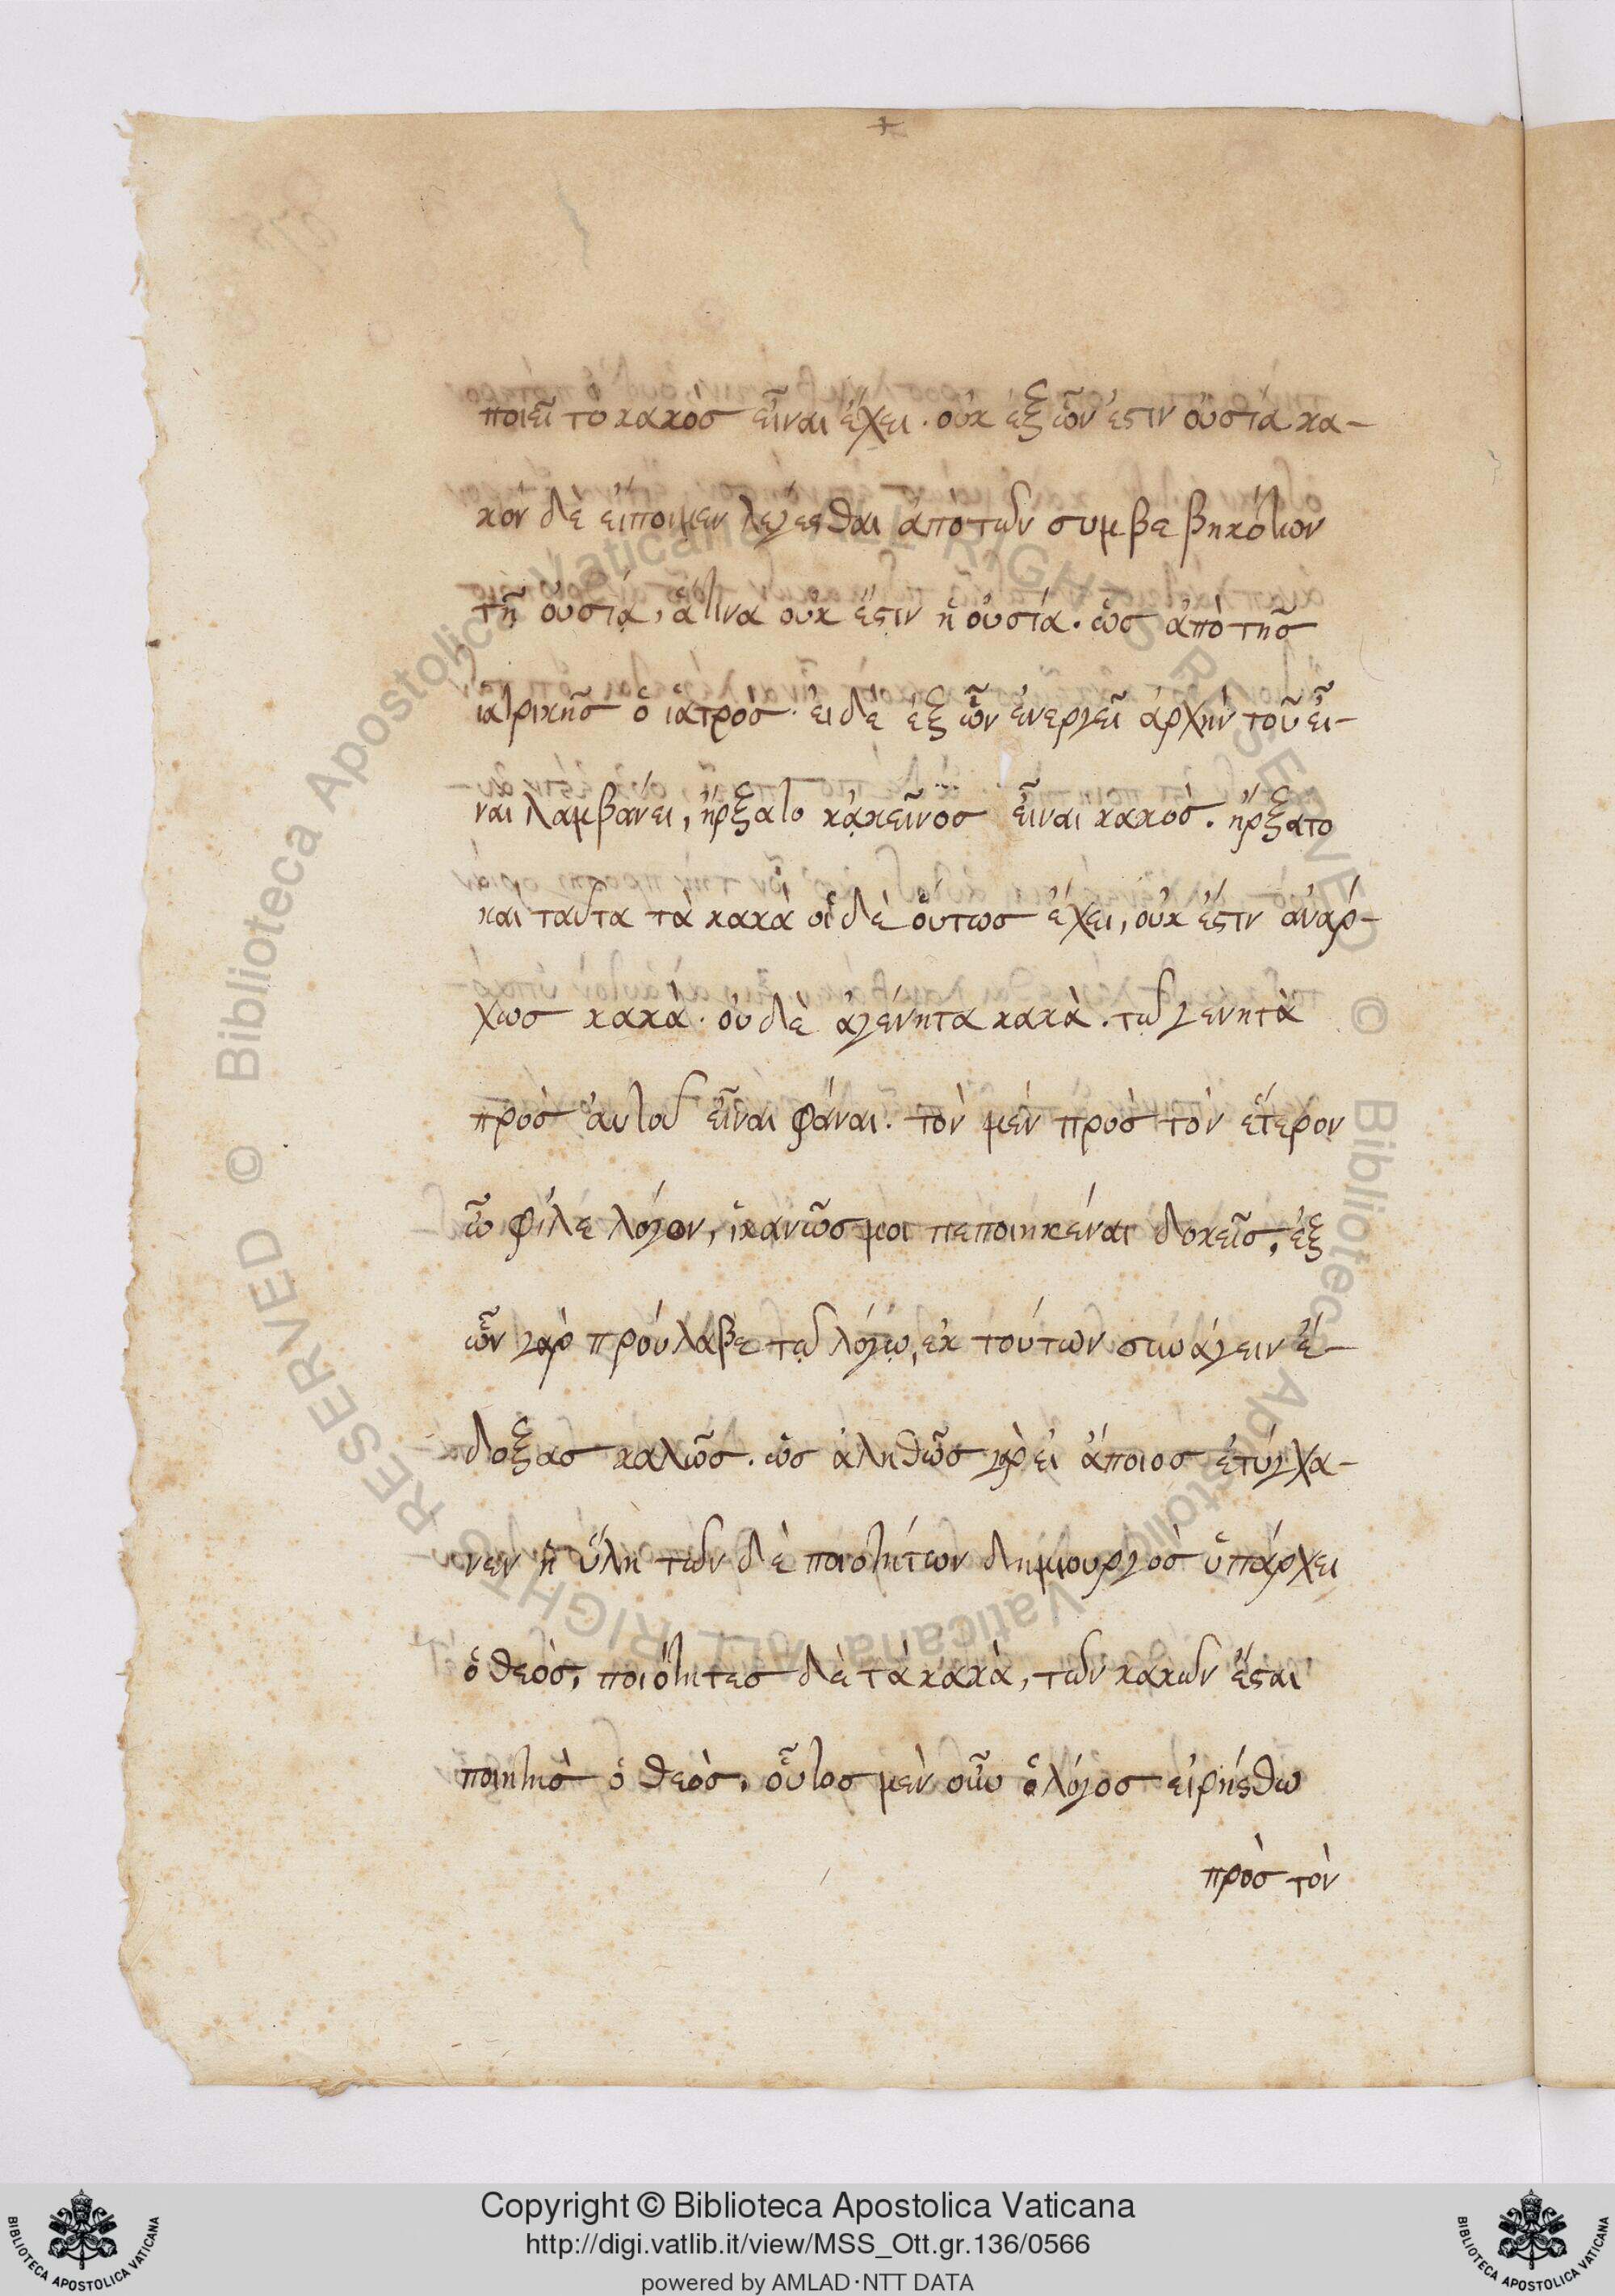 ποιεῖ το κακοσ εἶναι ἔχει. οὐκ ἐξ ὧν ἐστιν οὐσία κα-
κὸν δὲ εἴποιμεν λέγεσθαι ἀπο τῶν συμβεβηκότων
τῇ οὐσίᾳ, ἅτινα οὐκ ἔστιν ἡ οὐσία. ὡσ ἀπὸ τῆσ
ιατρικῆσ ὁ ἰατρόσ. ει δὲ ἐξ ὧν ἐνεργεῖ ἀρχὴν τοῦ εἶ-
ναι λαμβάνει, ἤρξατο κᾀκεῖνοσ εἶναι κακόσ. ἤρξατο
και ταῦτα τὰ κακὰ οἱ δὲ ὁυτωσ ἔχει, οὐκ ἔστιν ἀνάρ-
χωσ κακά. ὀυδὲ ἀγένητα κακὰ. τῷ γενητὰ
πρὸσ ἀυτοῦ εἶναι φάναι. τὸν μὲν πρὸσ τὸν ἕτερον
ὦ φίλε λόγον, ἱκανῶσ μοι πεποιηκέναι δοκεῖσ, ἐξ
ὧν γὰρ προύλαβε τῷ λόγῳ, ἐκ τούτων συνάγειν ἐ-
δοξασ καλῶσ. ὡσ ἀληθῶσ γὰρ εἰ ἄποιοσ ἐτύγχα-
νεν ἡ ὕλη τῶν δὲ ποιοτήτων δημιουργὸσ ὑπάρχει
ὁ θεὸσ, ποιότητεσ δὲ τὰ κακὰ, τῶν κακῶν ἔσται
ποιητὴσ ὁ θεὸσ. οὗτοσ μὲν οὖν ὁ λόγοσ εἰρήσθω
πρὸσ τὸν
Copyright © Biblioteca Apostolica Vaticana
http://digi.vatlib.it/view/MSS_Ott.gr.136/0566
powered by AMLAD·NTT DATA